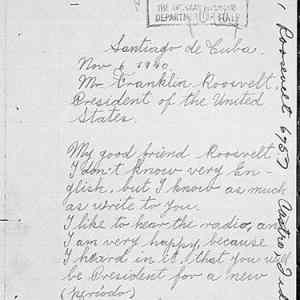 DEPARTMENT OF STATE
Santiago de Cuba.
Nov 6 1940.
Mr Franklin Roosvelt,
President of the United
States.
My good friend Roosvelt
I don't know very En-
glish, but I know as much
as write to you.
I like to hear the radio, and
I am very happy, because
I heard in it, that you will
be President for a new
(periodo)
Roosevelt 6757 Castro,